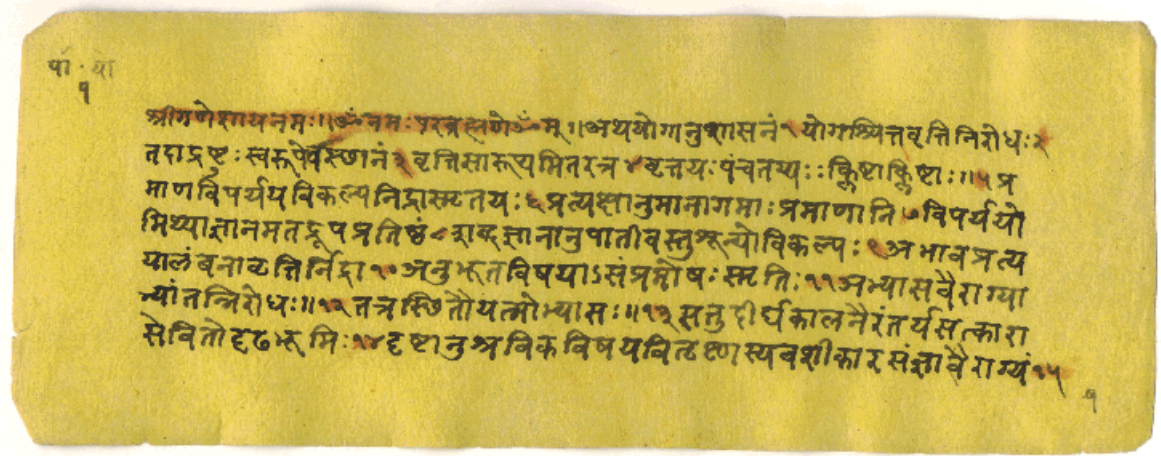 पा॰ या॰
१
श्रीगणेशायनमः॥ॐनमःपरब्रह्मणेॐम्॥अथयोगानुशासनं१योगश्चित्तवृत्तिनिरोधः२
तदाद्रष्टुःस्वरूपेवस्थानं३वृत्तिसारूप्यमितरत्र४वृत्तयःपंचतय्यःःक्लिष्टाक्लिष्टाः॥५प्र
माणविपर्ययविकल्पनिद्रास्मृतयः६प्रत्यक्षानुमानागमाःप्रमाणानि७विपर्ययो
मिथ्याज्ञानमतद्रूपप्रतिष्ठं८शब्दज्ञानानुपातीवस्तुशून्योविकल्पः९अभावप्रत्य
यालंबनावृत्तिर्निद्रा१०अनुभूतविषयाऽसंप्रमोषःस्मृतिः११अभ्यासवैराग्या
भ्यांतन्निरोधः॥१२तत्रस्थितौयत्नोभ्यासः॥१३सतुदीर्घकालनैरंतर्यसत्कारा
सेवितोदृढभूमिः१४दृष्टानुश्रविकविषयवितृष्णस्यवशीकारसंज्ञावैराग्यं१५
१